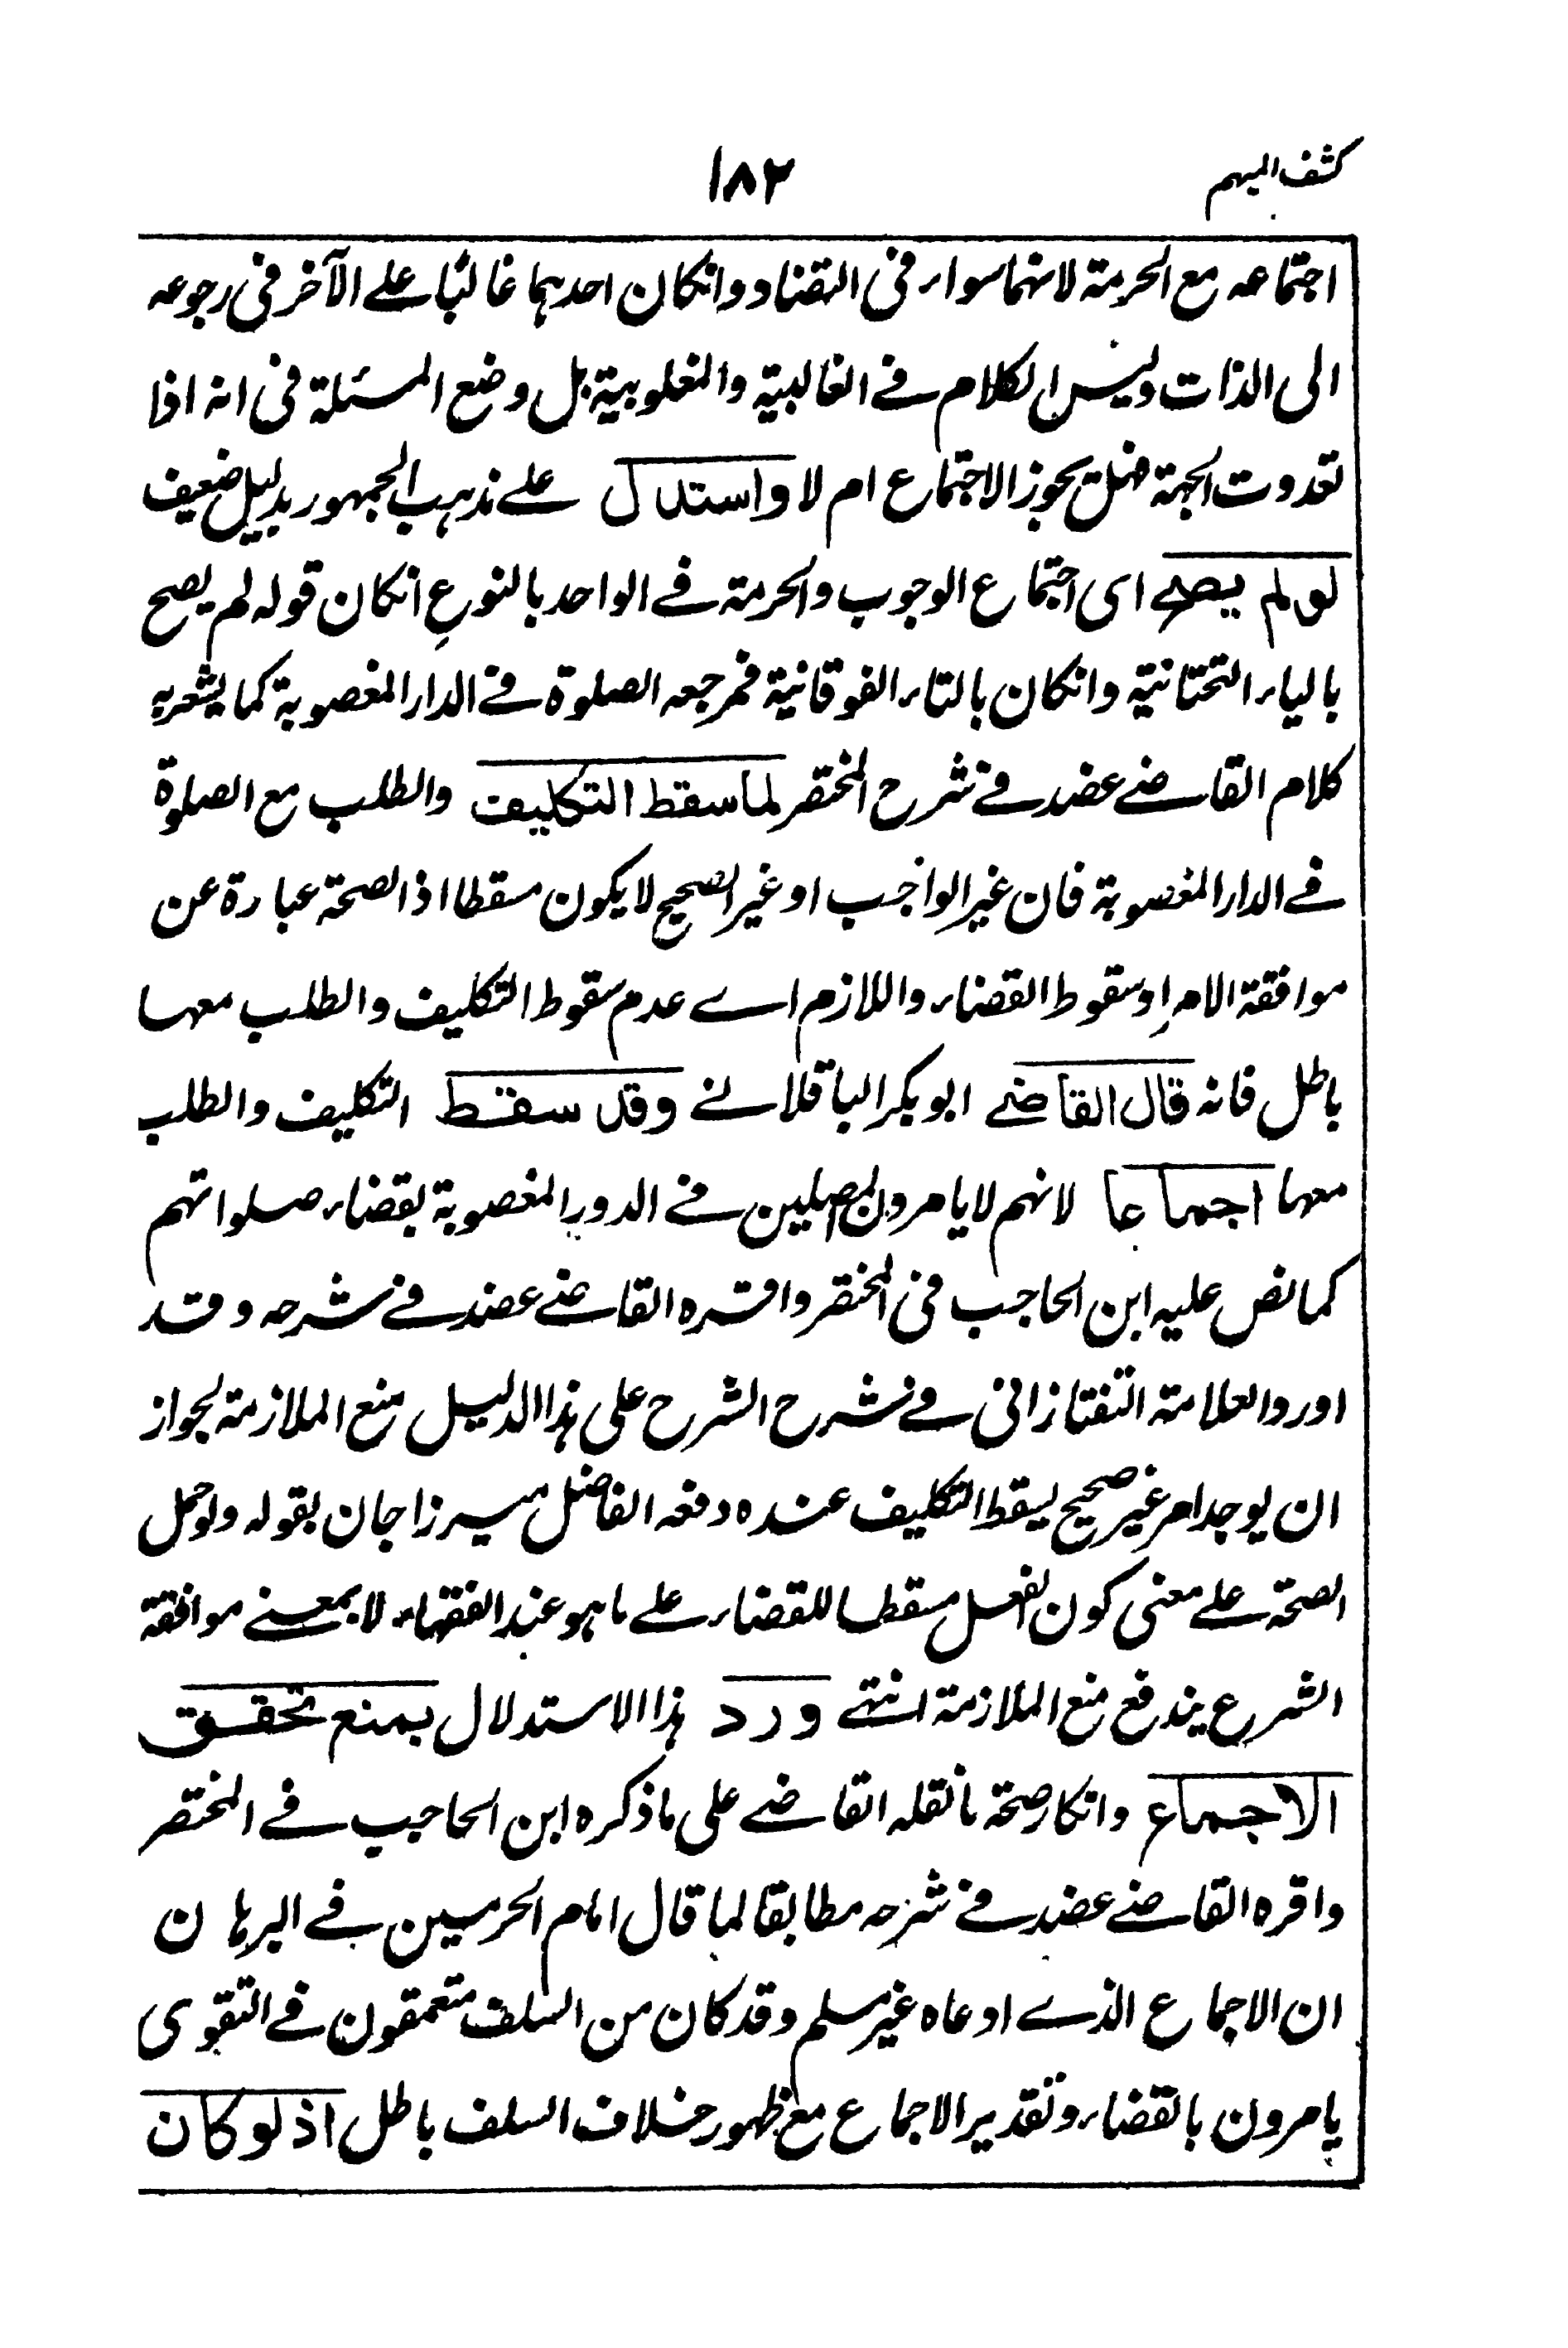 كشف المبهم
١٨٢
اجتماعه مع الحرمة لانهما سواء فى التضاد وانكان احدهما غالبًا على الآخر فى رجوعه
الى الذات وليس الكلام فى الغالبية والمغلوبية بل وضع المسئلة فى انه اذا
تعددت الجهة فهل يجوز الاجتماع ام لا واستدل على مذهب الجمهور بدليل ضعيف
لو لم يصح اى اجتماع الوجوب والحرمة فى الواحد بالنوع انكان قوله لم يصح
بالياء التحتانية وانكان بالتاء الفوقانية فمرجعه الصلوة فى الدار المغصوبة كما يشعر به
كلام القاضى عضد فى شرح المختصر لما سقط التكليف والطلب مع الصلوة
فى الدار المغصوبة فان غير الواجب او غير الصحيح لا يكون مسقطا اذ الصحة عبارة عن
موافقة الامر او سقوط القضاء واللازم اى عدم سقوط التكليف والطلب معها
باطل فانه قال القاضى ابو بكر الباقلانى وقد سقط التكليف والطلب
معها اجماعا لانهم لا يامرون المصلين فى الدور المغصوبة بقضاء صلواتهم
كما نص عليه ابن الحاجب فى المختصر واقره القاضى عضد فى شرحه وقد
اورد العلامة التفتازانى فى شرح الشرح على هذا الدليل منع الملازمة لجواز
ان يوجد امر غير صحيح يسقط التكليف عنده دفعه الفاضل ميرزا جان بقوله ولو حمل
الصحة على معنى كون الفعل مسقطا للقضاء على ما هو عند الفقهاء لا بمعنى موافقة
الشرع يندفع منع الملازمة انتهى ورد هذا الاستدلال بمنع تحقق
الاجماع وانكار صحة ما نقله القاضى على ما ذكره ابن الحاجب فى المختصر
واقره القاضى عضد فى شرحه مطابقا لما قال امام الحرمين فى البرهان
ان الاجماع الذى ادعاه غير مسلم وقد كان من السلف متعمقون فى التقوى
يامرون بالقضاء وتقدير الاجماع مع ظهور خلاف السلف باطل اذ لو كان